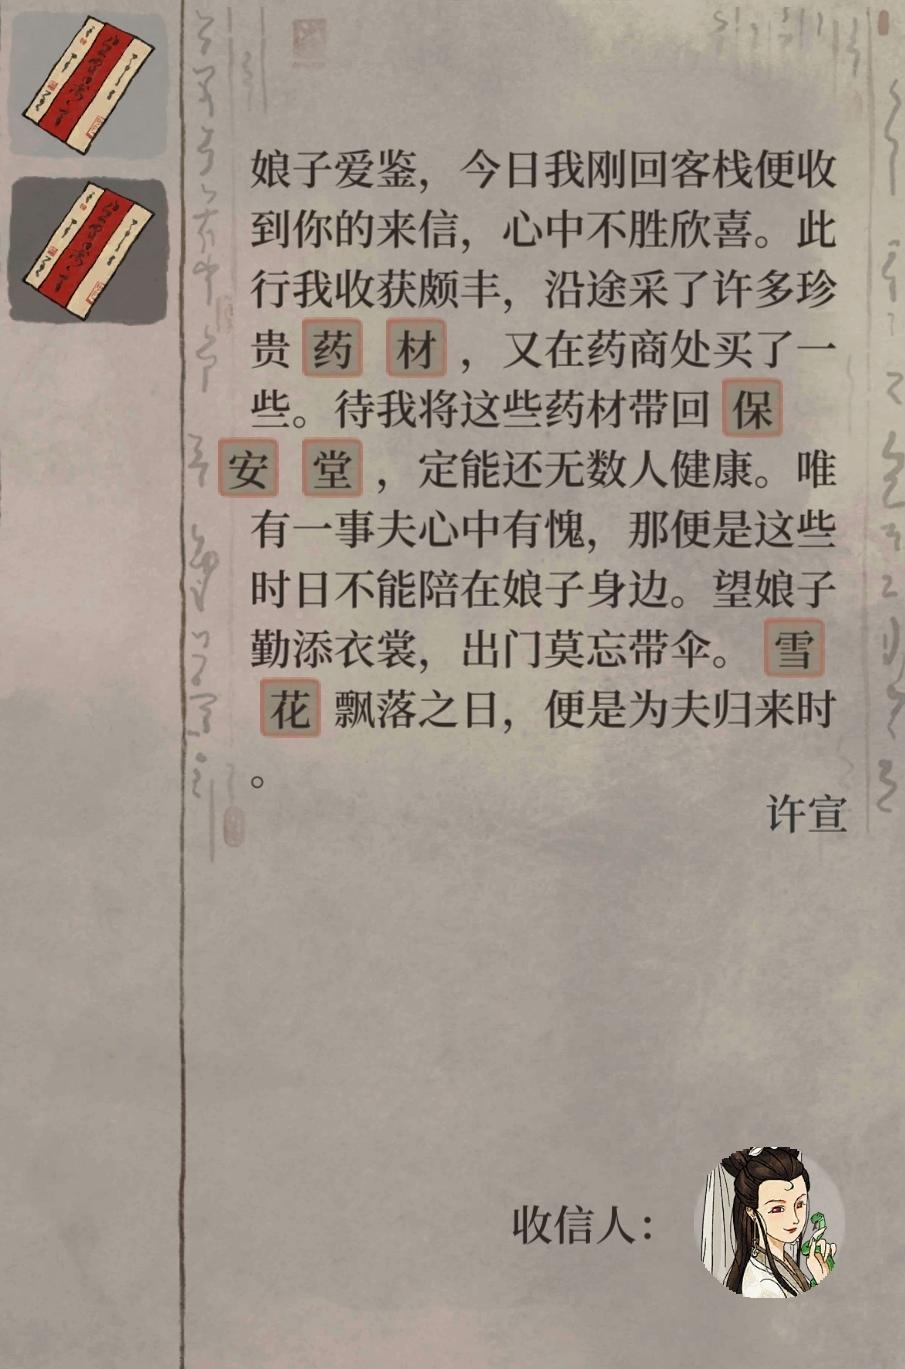 娘子爱鉴，今日我刚回客栈便收
到你的来信，心中不胜欣喜。此
行我收获颇丰，沿途采了许多珍
贵药材，又在药商处买了一
些。待我将这些药材带回保
安堂，定能还无数人健康。唯
有一事夫心中有愧，那便是这些
时日不能陪在娘子身边。望娘子
勤添衣裳，出门莫忘带伞。雪
花飘落之日，便是为夫归来时
。
许宣
收信人：